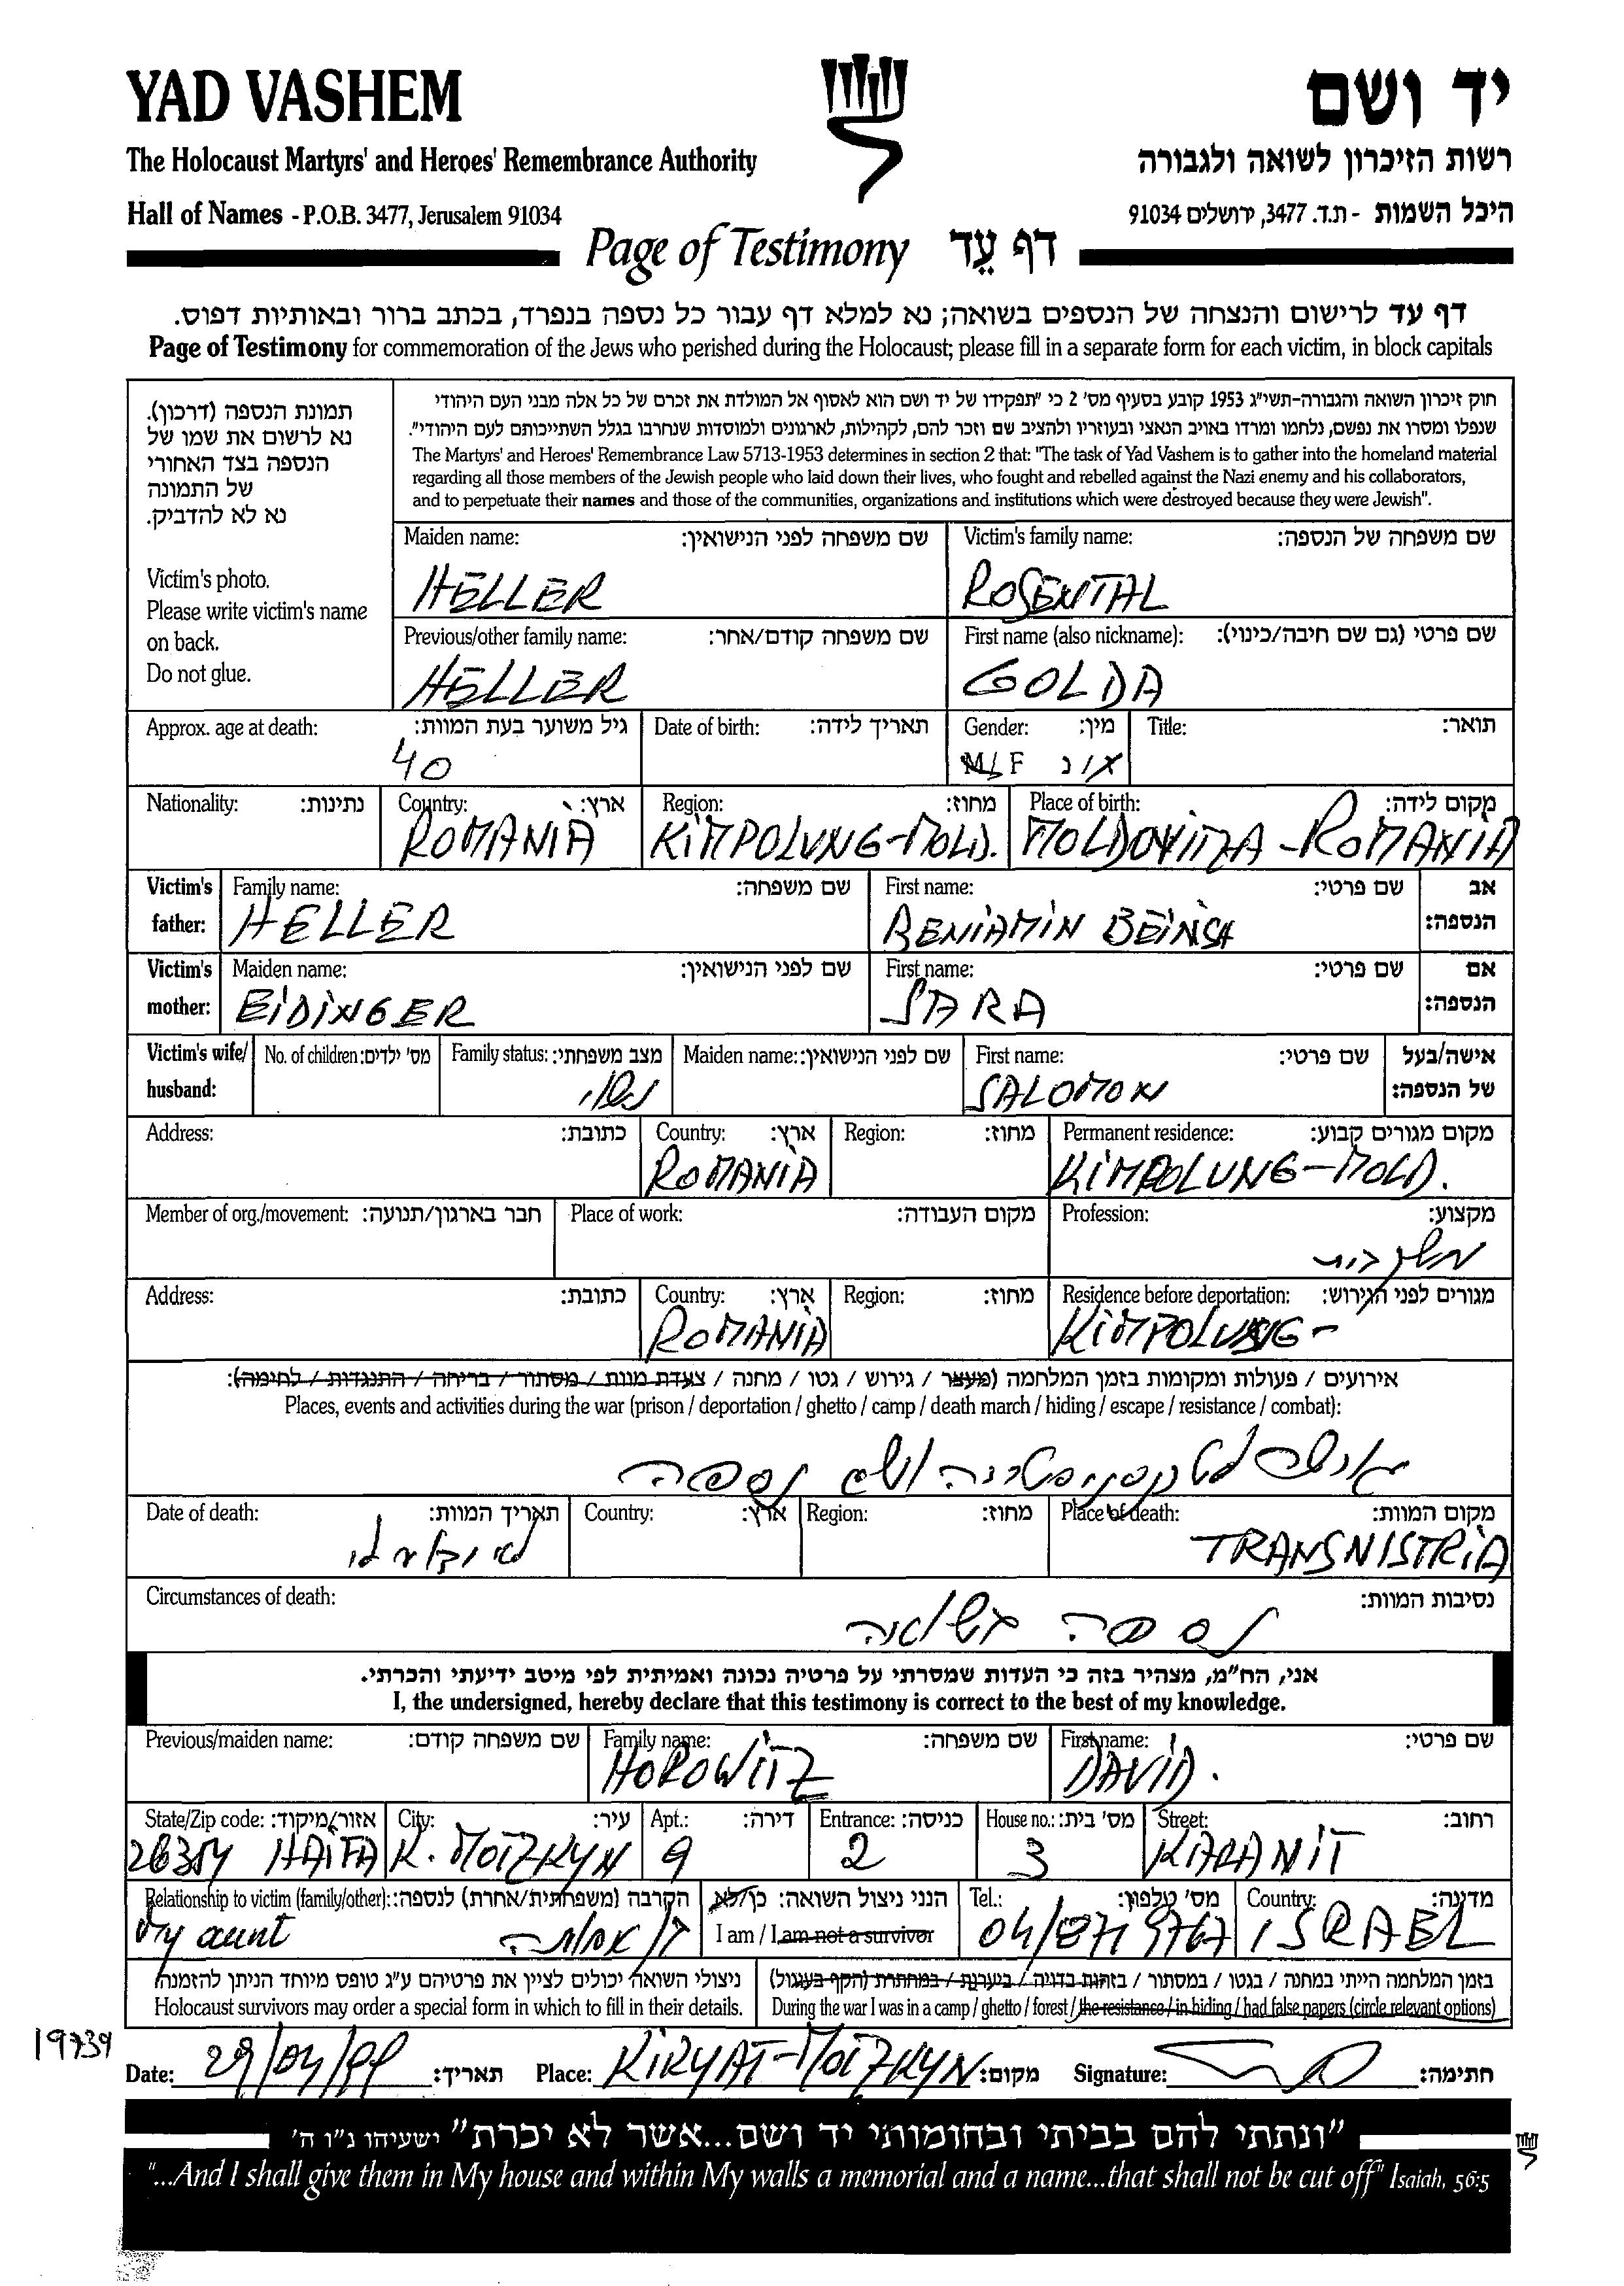 YAD VASHEM
יד ושם
The Holocaust Martyrs' and Heroes' Remembrance Authority
רשות הזיכרון לשואה ולגבורה
Hall of Names - P.O.B. 3477, Jerusalem 91034
היכל השמות - ת.ד. 3477, ירושלים 91034
Page of Testimony דף עֵד
דף עד לרישום והנצחה של הנספים בשואה; נא למלא דף עבור כל נספה בנפרד, בכתב ברור ובאותיות דפוס.
Page of Testimony for commemoration of the Jews who perished during the Holocaust; please fill in a separate form for each victim, in block capitals
תמונת הנספה (דרכון).
נא לרשום את שמו של
הנספה בצד האחורי
של התמונה
נא לא להדביק.
Victim's photo.
Please write victim's name
on back.
Do not glue.
חוק זיכרון השואה והגבורה-תשי"ג 1953 קובע בסעיף מס' 2 כי "תפקידו של יד ושם הוא לאסוף אל המולדת את זכרם של כל אלה מבני העם היהודי
שנפלו ומסרו את נפשם, נלחמו ומרדו באויב הנאצי ובעוזריו ולהציב שם וזכר להם, לקהילות, לארגונים ולמוסדות שנחרבו בגלל השתייכותם לעם היהודי".
The Martyrs' and Heroes' Remembrance Law 5713-1953 determines in section 2 that: "The task of Yad Vashem is to gather into the homeland material
regarding all those members of the Jewish people who laid down their lives, who fought and rebelled against the Nazi enemy and his collaborators,
and to perpetuate their names and those of the communities, organizations and institutions which were destroyed because they were Jewish".
Maiden name: שם משפחה לפני הנישואין: Victim's family name: שם משפחה של הנספה:
HELLER ROSENTAL
Previous/other family name: שם משפחה קודם/אחר: First name (also nickname): שם פרטי (גם שם חיבה/כינוי):
HELLER GOLDA
Approx. age at death: גיל משוער בעת המוות: Date of birth: תאריך לידה: Gender: מין: Title: תואר:
40 M/F ז/נ
Nationality: נתינות: Country: ארץ: Region: מחוז: Place of birth: מקום לידה:
ROMANIA KIMPOLUNG-MOLD. MOLDOVIZA-ROMANIA
Victim's father: Family name: שם משפחה: First name: שם פרטי: אב הנספה:
HELLER BENIAMIN BEINISH
Victim's mother: Maiden name: שם לפני הנישואין: First name: שם פרטי: אם הנספה:
EIDINGER SARA
Victim's wife/ husband: No. of children: מס' ילדים: Family status: מצב משפחתי: Maiden name: שם לפני הנישואין: First name: שם פרטי: אישה/בעל של הנספה:
נשוי SALOMON
Address: כתובת: Country: ארץ: Region: מחוז: Permanent residence: מקום מגורים קבוע:
ROMANIA KIMPOLUNG-MOLD.
Member of org./movement: חבר בארגון/תנועה: Place of work: מקום העבודה: Profession: מקצוע:
משק בית
Address: כתובת: Country: ארץ: Region: מחוז: Residence before deportation: מגורים לפני הגירוש:
ROMANIA KIMPOLUNG-
אירועים / פעולות ומקומות בזמן המלחמה (מעצר / גירוש / גטו / מחנה / צעדת מוות / מסתור / בריחה / התנגדות / לחימה):
Places, events and activities during the war (prison / deportation / ghetto / camp / death march / hiding / escape / resistance / combat):
לטרנסניסטריה ושם נספה
Date of death: תאריך המוות: Country: ארץ: Region: מחוז: Place of death: מקום המוות:
לא ידוע לי TRANSNISTRIA
Circumstances of death: נסיבות המוות:
נספה בשואה
אני, הח"מ, מצהיר בזה כי העדות שמסרתי על פרטיה נכונה ואמיתית לפי מיטב ידיעתי והכרתי.
I, the undersigned, hereby declare that this testimony is correct to the best of my knowledge.
Previous/maiden name: שם משפחה קודם: Family name: שם משפחה: First name: שם פרטי:
HOROWITZ DAVID.
State/Zip code: אזור/מיקוד: City: עיר: Apt.: דירה: Entrance: כניסה: House no.: מס' בית: Street: רחוב:
HAIFA K. MOTZKYN 9 2 3 KALANIT
Relationship to victim (family/other): הקרבה (משפחתית/אחרת) לנספה: הנני ניצול השואה: כן/לא Tel.: מס' טלפון: Country: מדינה:
My aunt I am / I am not a survivor 04/871 9767 ISRAEL
ניצולי השואה יכולים לציין את פרטיהם ע"ג טופס מיוחד הניתן להזמנה בזמן המלחמה הייתי במחנה / בגטו / במסתור / בזהות בדויה / ביערות / במחתרת (הקף בעיגול)
Holocaust survivors may order a special form in which to fill in their details. During the war I was in a camp / ghetto / forest / the resistance / in hiding / had false papers (circle relevant options)
19739
Date: 29/04/99 תאריך: Place: KIRYAT-MOTZKYN מקום: Signature: חתימה:
"ונתתי להם בביתי ובחומותי יד ושם...אשר לא יכרת" ישעיהו נ"ו ה'
"...And I shall give them in My house and within My walls a memorial and a name...that shall not be cut off" Isaiah, 56:5